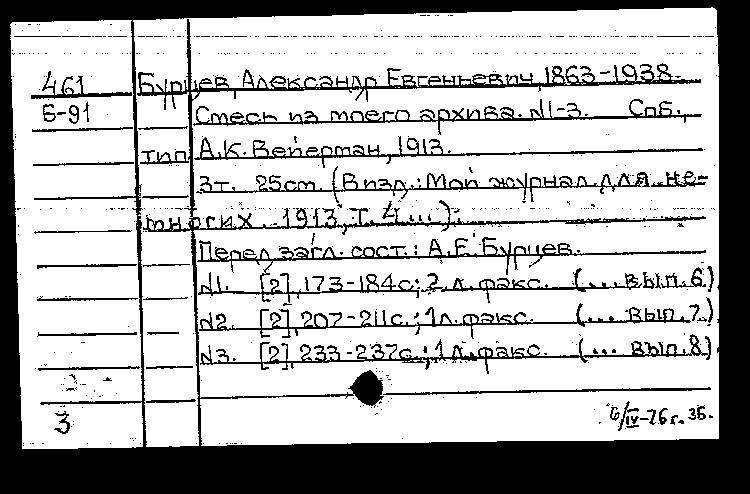 461 Бурцев, Александр Евгеньевич, 1863-1938.
Б-91 Смесь из моего архива. №1-3. Спб.,
тип. А.К. Вейерман, 1913.
3т. 25см. (В изд.: Мой журнал для не-
многих. 1913, Т. 4...).
Перед загл. сост.: А.Е. Бурцев.
№1. [2], 173-184с.; 2 л. факс. (... вып. 6).
№2. [2], 207-211с.; 1 л. факс. (... вып. 7).
№3. [2], 233-237с.; 1 л. факс. (... вып. 8).
3
6/IV-76г.